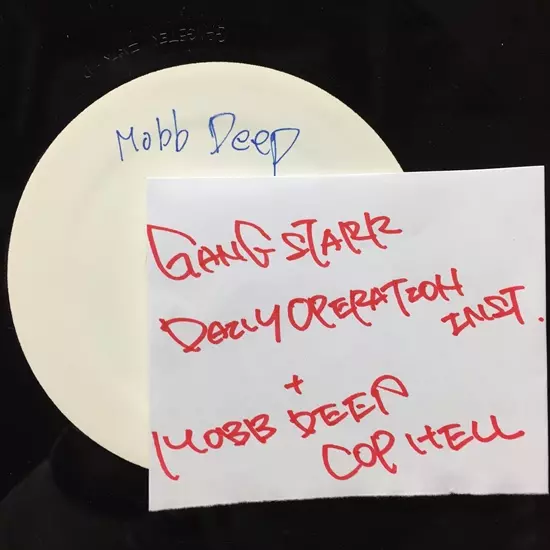 Mobb Deep
GANGSTARR
DAILY OPERATION
INST.
+
MOBB DEEP
COP HELL